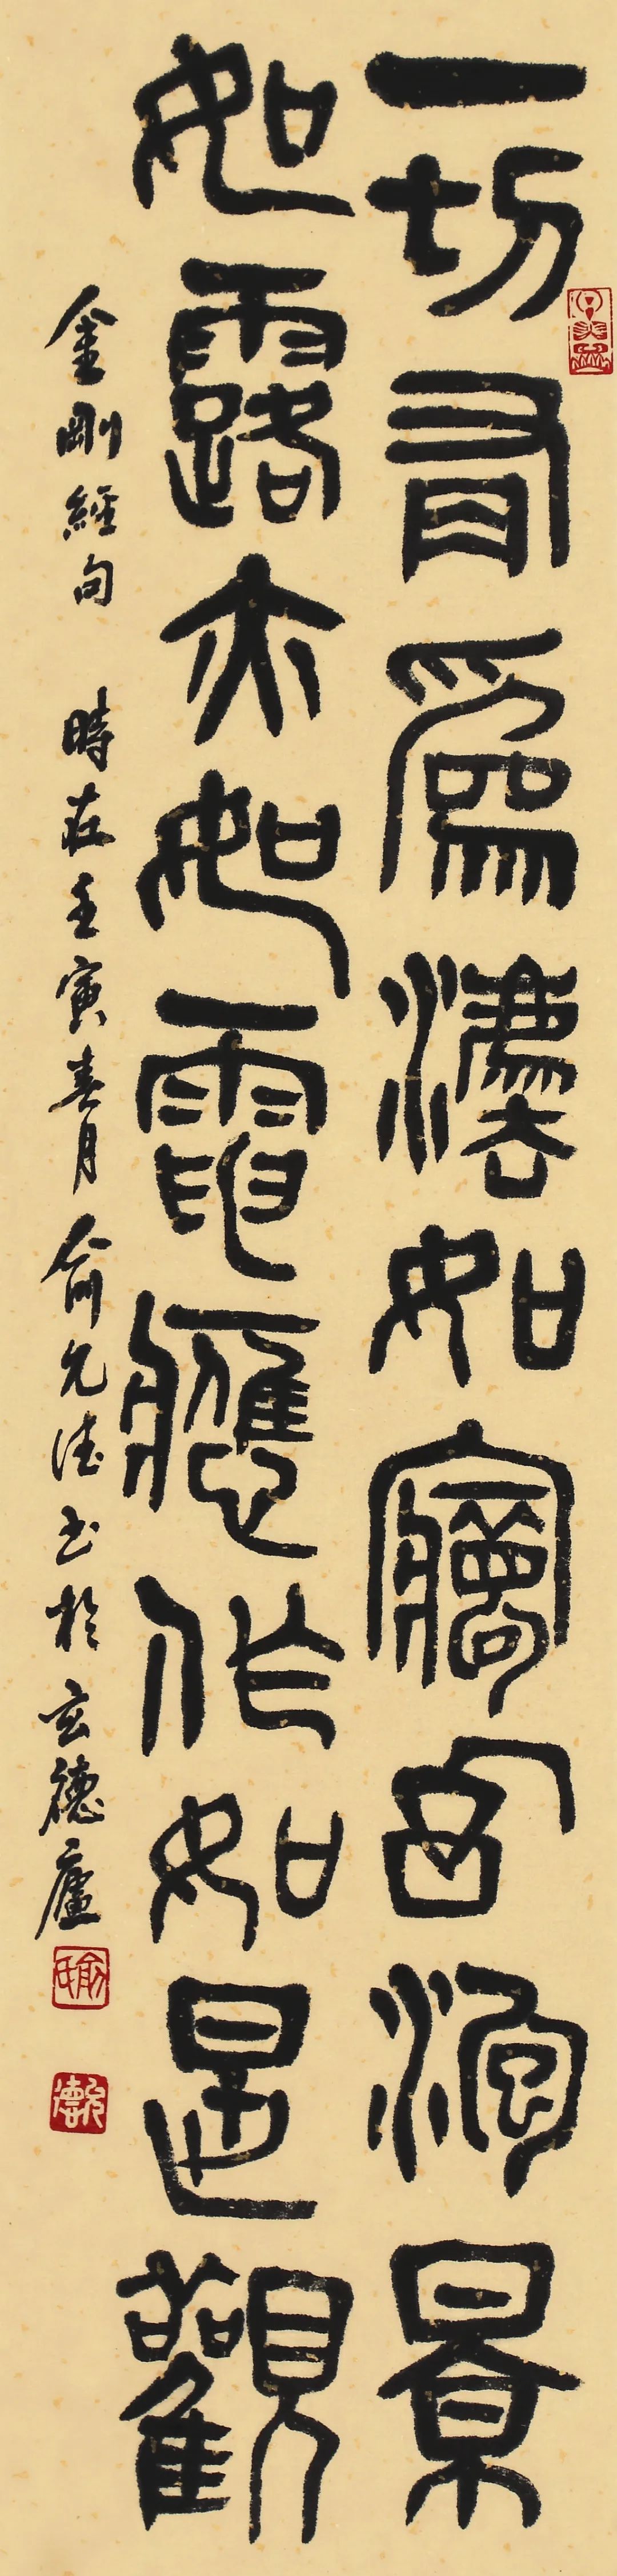 一切有爲灋如夢幻泡景
如露亦如電應作如是觀
金剛經句 時在壬寅春月俞允法书於玄德廬